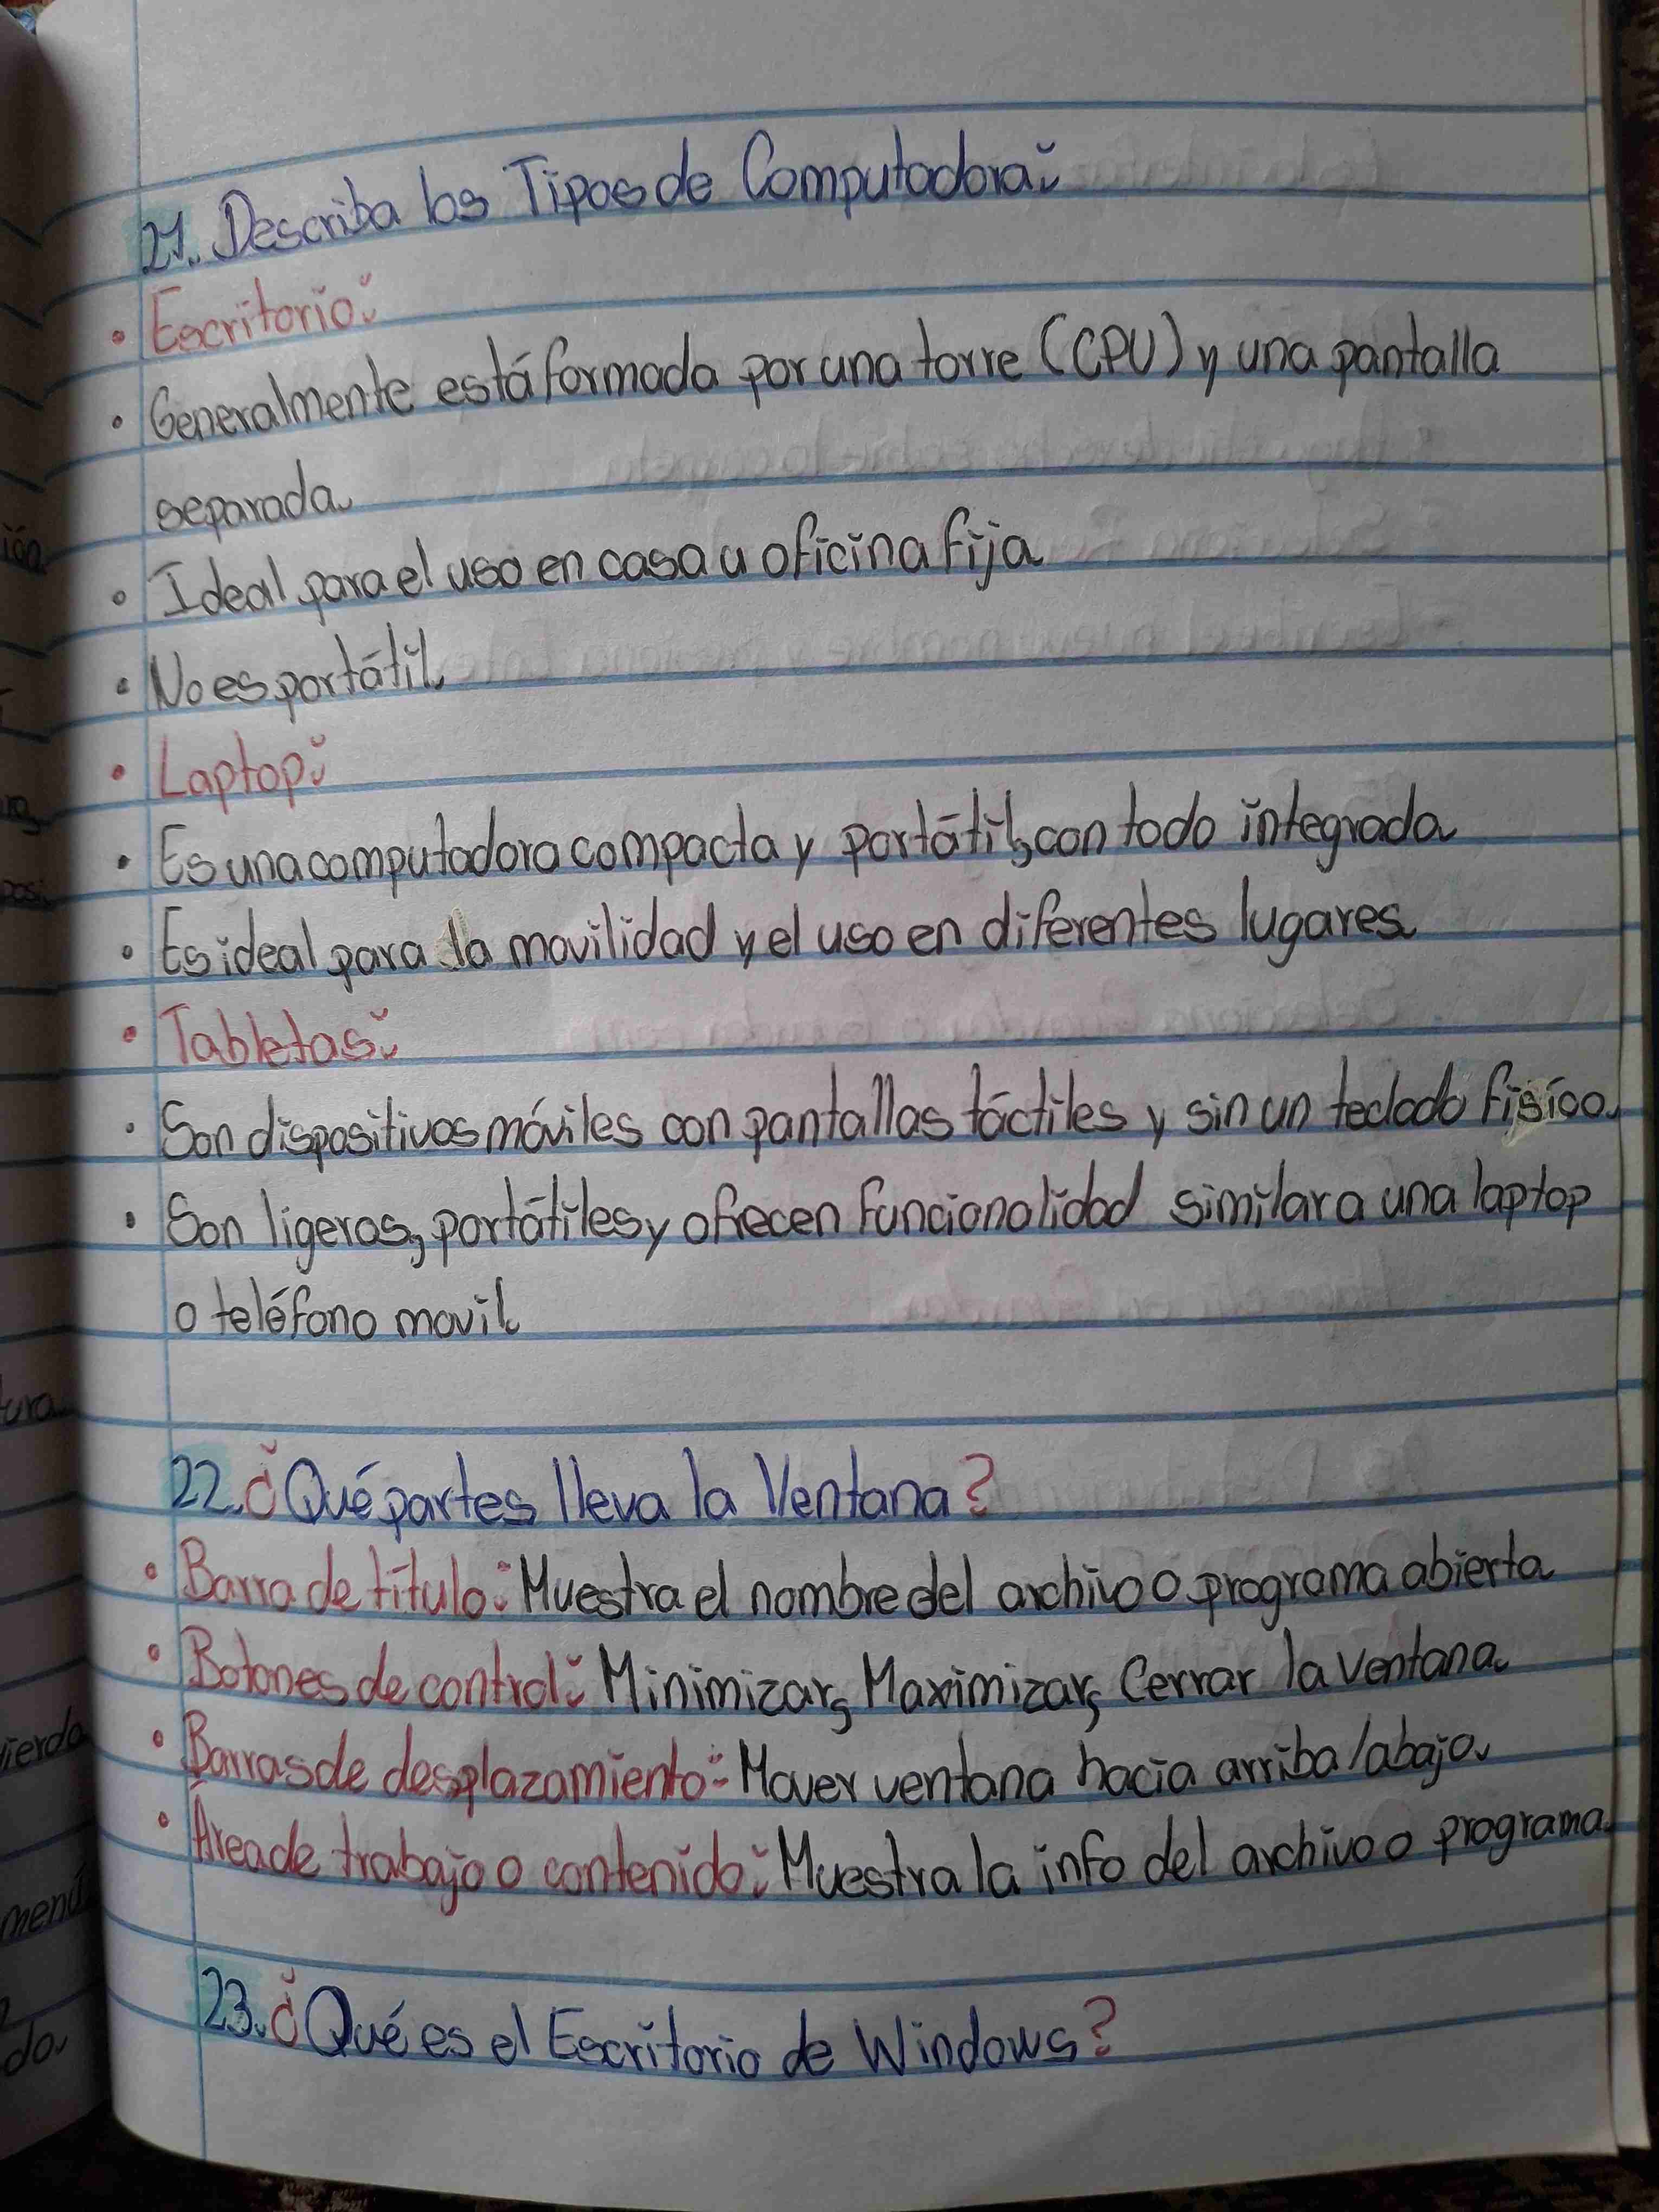 21. Describa los Tipos de Computadora:
• Escritorio:
• Generalmente está formada por una torre (CPU) y una pantalla
separada.
• Ideal para el uso en casa u oficina fija.
• No es portátil.
• Laptop:
• Es una computadora compacta y portátil, con todo integrada.
• Es ideal para la movilidad y el uso en diferentes lugares.
• Tabletas:
• Son dispositivos móviles con pantallas táctiles y sin un teclado físico.
• Son ligeras, portátiles y ofrecen funcionalidad similar a una laptop
o teléfono movil.
22. ¿Qué partes lleva la Ventana?
• Barra de título: Muestra el nombre del archivo o programa abierta
• Botones de control: Minimizar, Maximizar, Cerrar la ventana.
• Barras de desplazamiento: Mover ventana hacia arriba/abajo.
• Área de trabajo o contenido: Muestra la info del archivo o programa.
23. ¿Qué es el Escritorio de Windows?
ión
tura
menú
do.